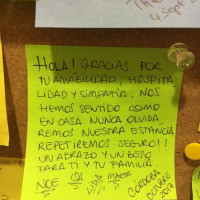 The
4 Sept
HOLA! GRACIAS POR
TU AMABILIDAD, HOSPITA
LIDAD Y SIMPATÍA. NOS
HEMOS SENTIDO COMO
EN CASA. NUNCA OLVIDA
REMOS NUESTRA ESTANCIA
REPETIREMOS SEGURO!!
UN ABRAZO Y UN BESO
PARA TI Y TU FAMILIA
NOE ISA MARTA
CÓRDOBA
OCTUBRE
2017